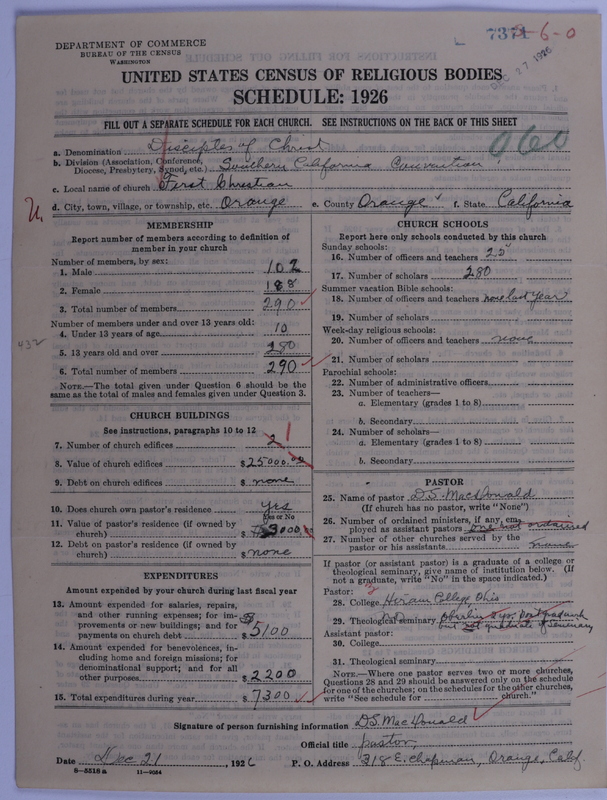 DEPARTMENT OF COMMERCE
BUREAU OF THE CENSUS
WASHINGTON
DEC 27 1926
UNITED STATES CENSUS OF RELIGIOUS BODIES
SCHEDULE: 1926
FILL OUT A SEPARATE SCHEDULE FOR EACH CHURCH. SEE INSTRUCTIONS ON THE BACK OF THIS SHEET
960
a. Denomination Disciples of Christ
b. Division (Association, Conference, Diocese, Presbytery, Synod, etc.) Southern California Convention
c. Local name of church First Christian
d. City, town, village, or township, etc. Orange e. County Orange f. State California
MEMBERSHIP
Report number of members according to definition of member in your church
Number of members, by sex:
1. Male 102
2. Female 188
3. Total number of members 290
Number of members under and over 13 years old:
4. Under 13 years of age 10
432
5. 13 years old and over 280
6. Total number of members 290
NOTE.—The total given under Question 6 should be the same as the total of males and females given under Question 3.
CHURCH BUILDINGS
See instructions, paragraphs 10 to 12
7. Number of church edifices 2 1
8. Value of church edifices $25000.00
9. Debt on church edifices $ none
10. Does church own pastor's residence yes
Yes or No
11. Value of pastor's residence (if owned by church) $ 3000
12. Debt on pastor's residence (if owned by church) $ none
EXPENDITURES
Amount expended by your church during last fiscal year
13. Amount expended for salaries, repairs, and other running expenses; for improvements or new buildings; and for payments on church debt $ 5100
14. Amount expended for benevolences, including home and foreign missions; for denominational support; and for all other purposes $ 2200
15. Total expenditures during year $ 7300
CHURCH SCHOOLS
Report here only schools conducted by this church
Sunday schools:
16. Number of officers and teachers 25
17. Number of scholars 280
Summer vacation Bible schools:
18. Number of officers and teachers none last year
19. Number of scholars
Week-day religious schools:
20. Number of officers and teachers none
21. Number of scholars
Parochial schools:
22. Number of administrative officers
23. Number of teachers—
a. Elementary (grades 1 to 8)
b. Secondary
24. Number of scholars—
a. Elementary (grades 1 to 8)
b. Secondary
PASTOR
25. Name of pastor D.S. MacDonald
(If church has no pastor, write "None")
26. Number of ordained ministers, if any, employed as assistant pastors one not ordained
27. Number of other churches served by the pastor or his assistants none
If pastor (or assistant pastor) is a graduate of a college or theological seminary, give name of institution below. (If not a graduate, write "No" in the space indicated.)
Pastor:
28. College Hiram College Ohio
29. Theological seminary Oberlin
but not graduate of seminary
Assistant pastor:
30. College
31. Theological seminary
NOTE.—Where one pastor serves two or more churches, Questions 28 and 29 should be answered only on the schedule for one of the churches; on the schedules for the other churches, write "See schedule for church."
Signature of person furnishing information D.S. MacDonald
Official title pastor,
Date Dec 21, 1926 P. O. Address 318 E. Chapman, Orange, Calif.
8—5518a 11—9054